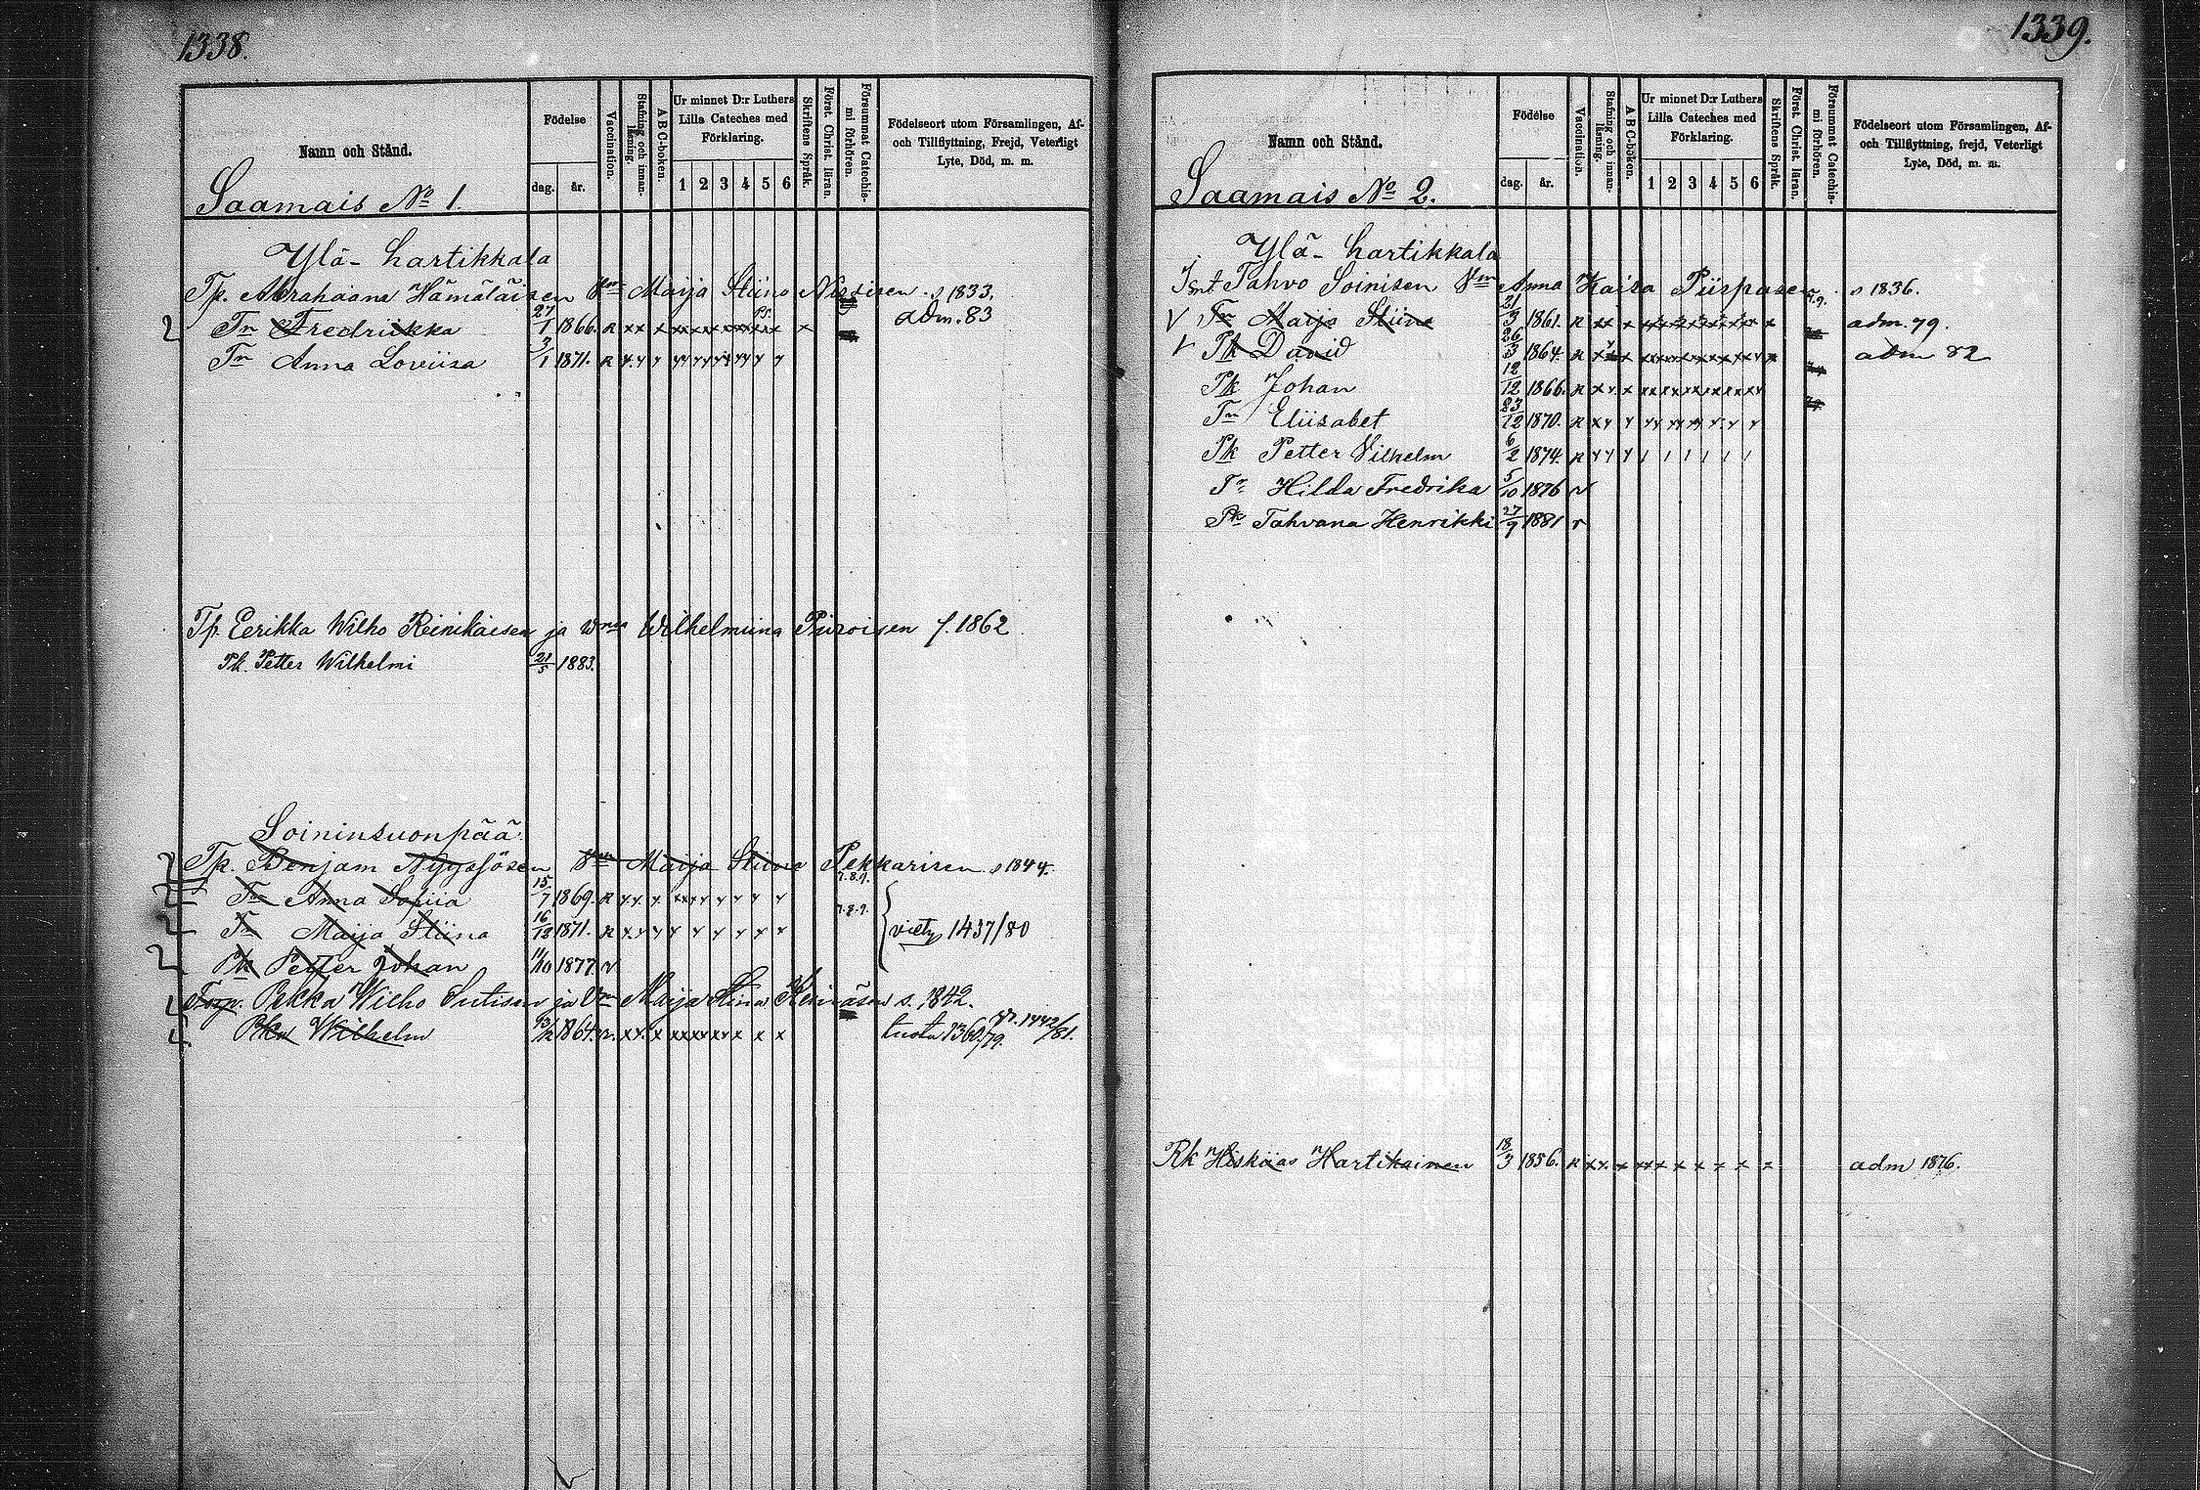 1338.
Namn och Stånd.
Födelse
dag.
år.
Vaccination.
Stafning och innanläsning.
A B C-boken.
Ur minnet D:r Luthers Lilla Cateches med Förklaring.
1 2 3 4 5 6
Skriftens Språk.
Först. Christ. läran.
Försummat Catechismi förhören.
Födelseort utom Församlingen, Af- och Tillflyttning, Frejd, Veterligt Lyte, Död, m. m.
Saamais No 1.
Ylä-hartikkala
Tp. Abrahaana Hämäläisen Vmo Maija Stiina Nissisen s 1833.
Tr Fredriikka 27/1 1866. R xx x xx xx xx x x x adm. 83
Tr Anna Loviisa 7/1 1871. R
Tp. Eerikka Wilho Reinikaisen ja Wmo Wilhelmiina Piiroisen s. 1862
Pk. Petter Wilhelmi 21/5 1883.
Soininsuonpää
Tp. Benjam Nyyssösen Vmo Maija Stiina Pekkarisen s 1844.
Tr Anna Sofiia 15/7 1869. R 7.8.9.
Tr Maija Stiina 16/12 1871. R 7.8.9. viety 1437/80
Pk Petter Johan 11/10 1877.
Pekka Wilho Sutisen ja Vmo Maija Stina s. 1842.
Pkn Wilhelm 1864. tuotu 1360/79. 1442/81.
1339.
Namn och Stånd.
Födelse
dag.
år.
Vaccination.
Stafning och innanläsning.
A B C-boken.
Ur minnet D:r Luthers Lilla Cateches med Förklaring.
1 2 3 4 5 6
Skriftens Språk.
Först. Christ. läran.
Försummat Catechismi förhören.
Födelseort utom Församlingen, Af- och Tillflyttning, frejd, Veterligt Lyte, Död, m. m.
Saamais No 2.
Ylä-hartikkala
Isnt Tahvo Soinisen Vmo Anna Kaisa Piispasen s 1836.
Tr Maija Stiina 21/3 1861. R adm. 79.
Pk David 26/3 1864. R adm 82
Pk Johan 12/12 1866. R
Tr Eliisabet 23/12 1870. R
Pk Petter Vilhelm 6/2 1874. R
Tr Hilda Fredrika 5/10 1876
Pk Tahvana Henrikki 27/9 1881
Rk Hiskiias Hartikainen 18/3 1856. R adm 1876.